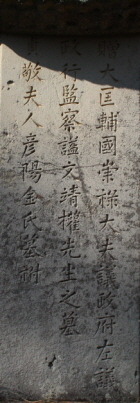 大匡輔國崇祿大夫議政府左議
政行監察諡文靖權先生之墓
敬夫人彦陽金氏墓祔